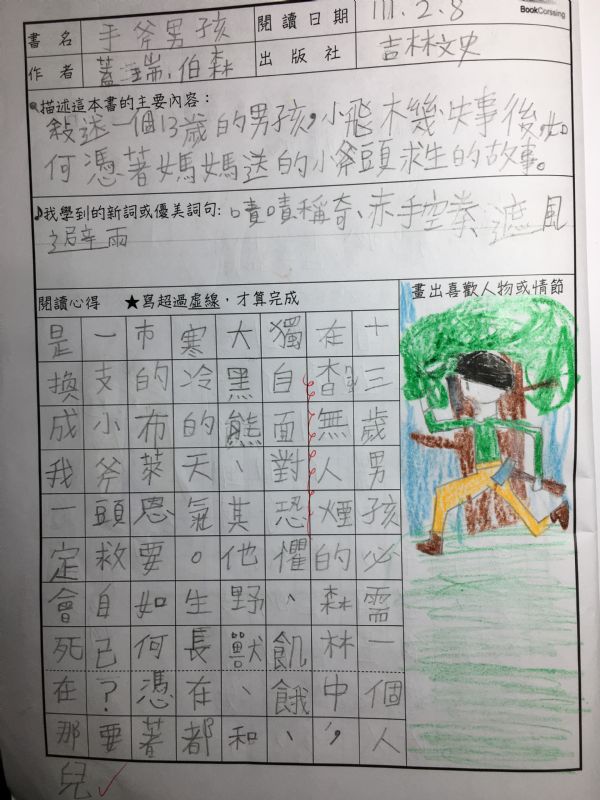 BookCorssing
書名 手斧男孩 閱讀日期 111.2.8
作者 蓋瑞.伯森 出版社 吉林文史
描述這本書的主要內容：
敍述一個13歲的男孩，小飛機失事後，如
何憑著媽媽送的小斧頭求生的故事。
我學到的新詞或優美詞句：嘖嘖稱奇、赤手空拳 遮風
避雨
閱讀心得 ★寫超過虛線，才算完成
畫出喜歡人物或情節
十三歲男孩必需一個人
在杳無人煙的森林中，
獨自面對恐懼、飢餓、
大黑熊、其他野獸、和
寒冷的天氣。生長在都
市的布萊恩要如何憑著
一支小斧頭救自己？要
是換成我一定會死在那兒